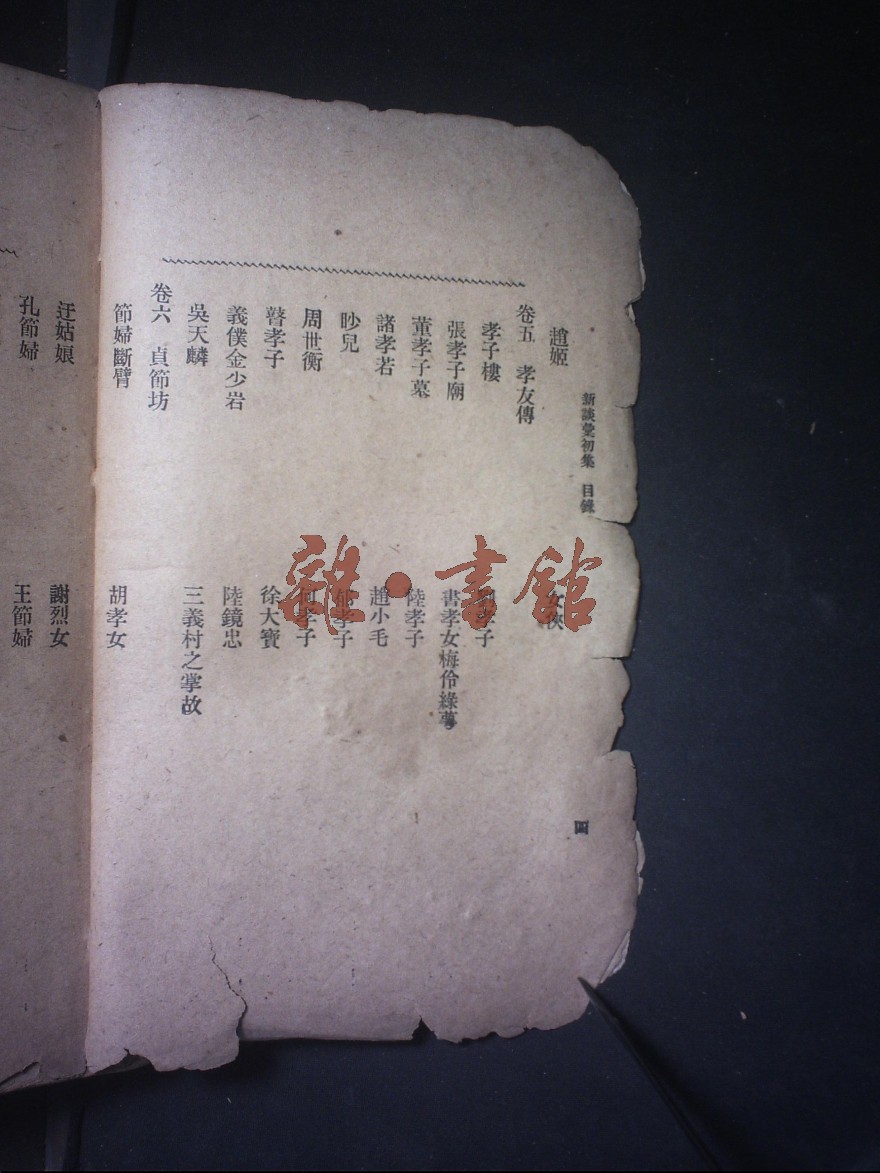 新談彙初集 目錄
四
趙姬
女俠
卷五 孝友傳
孝子樓
孝子
張孝子廟
書孝女梅伶綠萼
董孝子墓
陸孝子
諸孝若
趙小毛
眇兒
孝子
周世衡
何孝子
瞽孝子
徐大寶
義僕金少岩
陸鏡忠
吳天麟
三義村之掌故
卷六 貞節坊
節婦斷臂
胡孝女
迂姑娘
謝烈女
孔節婦
王節婦
雜·書館